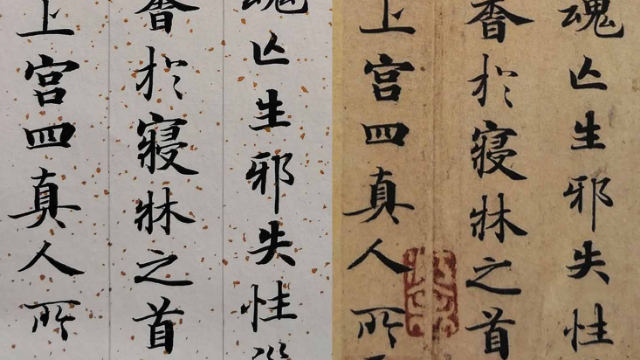 魂亡生邪失性
香於寢牀之首
上宮四真人所
魂亡生邪失性
香於寢牀之首
上宮四真人所